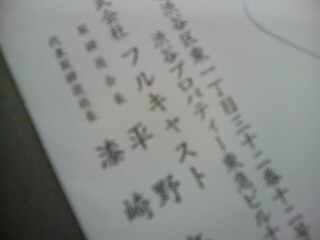 渋谷区東一丁目三十二番十二号
渋谷プロパティー東急ビル十
式会社フルキャスト
取締役会長 平野
代表取締役社長 漆崎